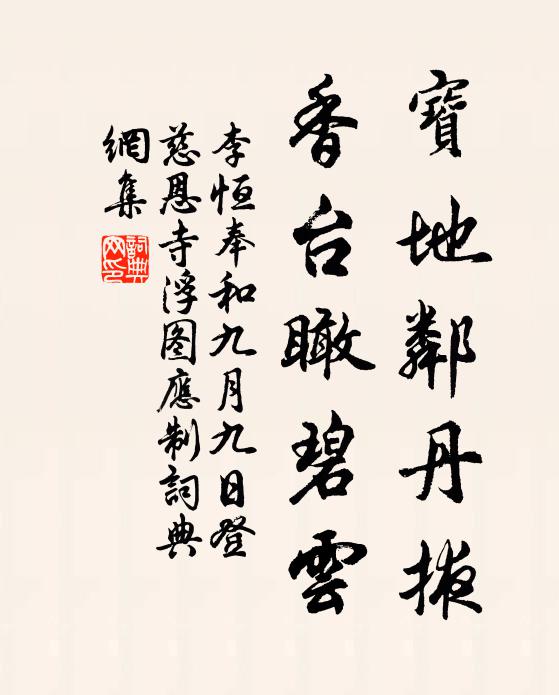 寶地鄰丹掖
香台瞰碧雲
李恒奉和九月九日登
慈恩寺浮图應制詞典
網集
詞典
网印